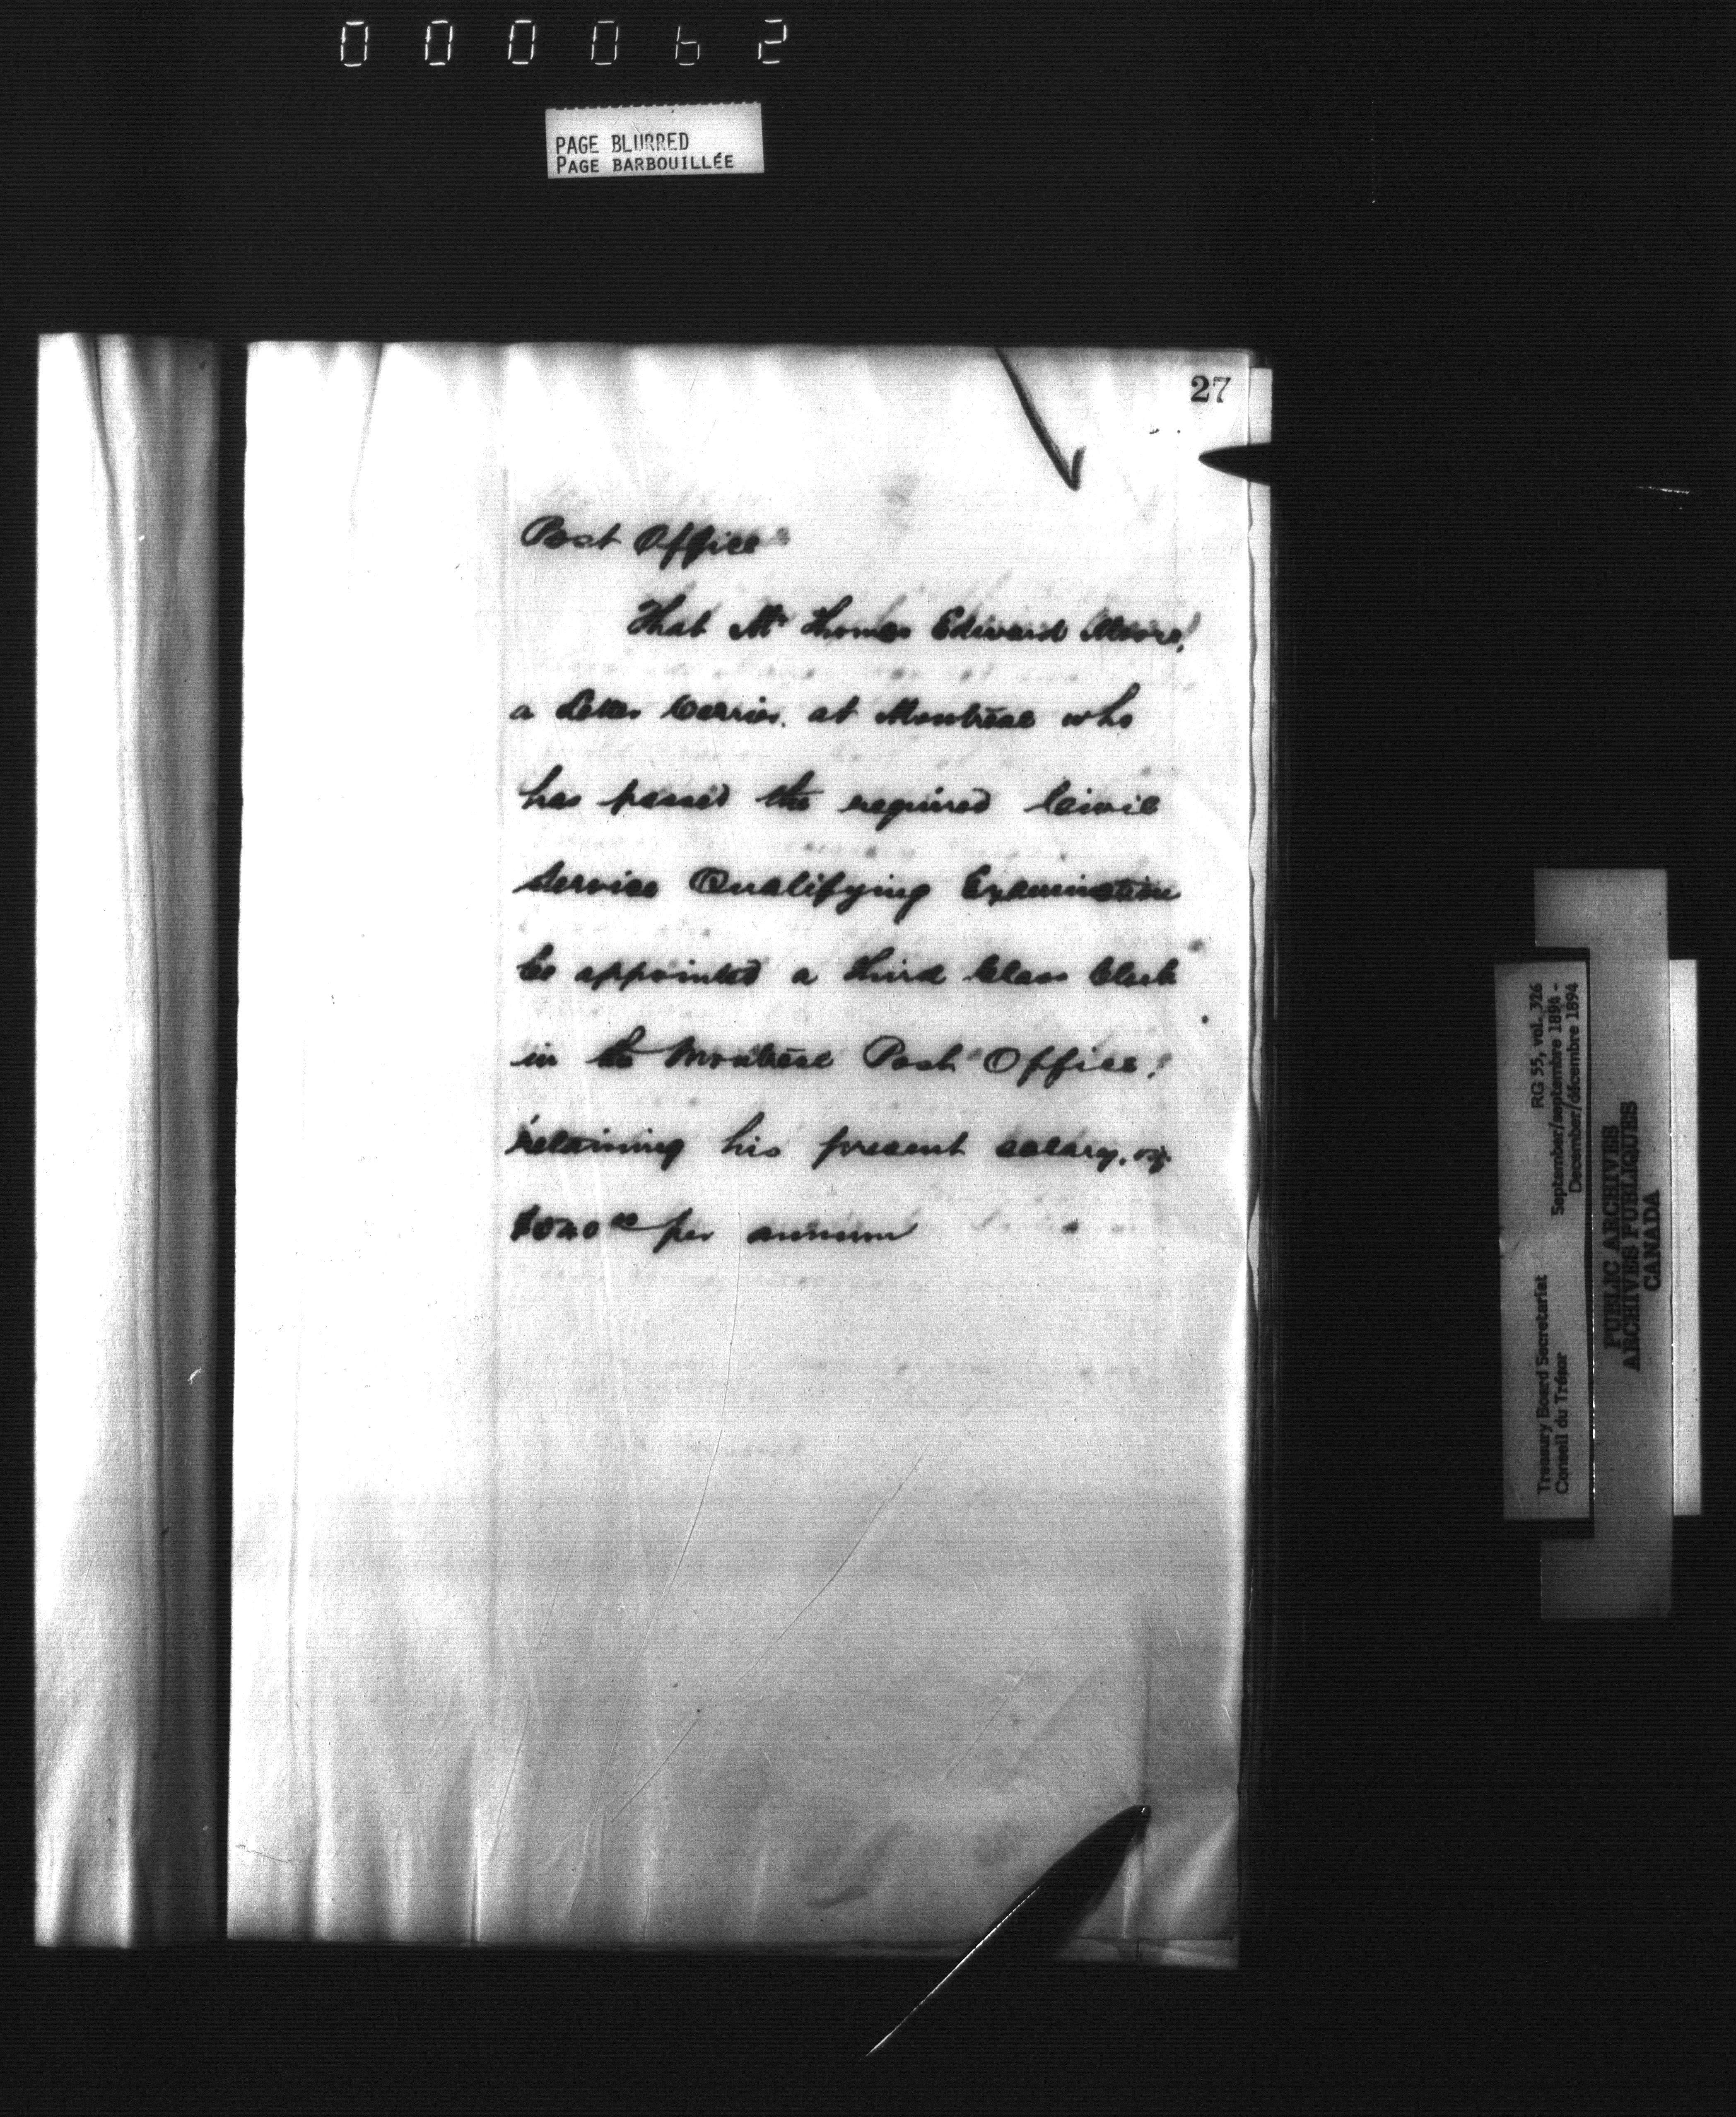 000062
PAGE BLURRED
PAGE BARBOUILLÉE
27
Post Office
That Mr Thomas Edward Moore,
a Letter Carrier. at Montreal who
has passed the required Civil
Service Qualifying Examination
be appointed a Third Class Clerk
in the Montreal Post Office,
retaining his present salary, viz.
per annum
Treasury Board Secretariat RG 55, vol. 326
Conseil du Trésor September/septembre 1894 -
December/décembre 1894
PUBLIC ARCHIVES
ARCHIVES PUBLIQUES
CANADA